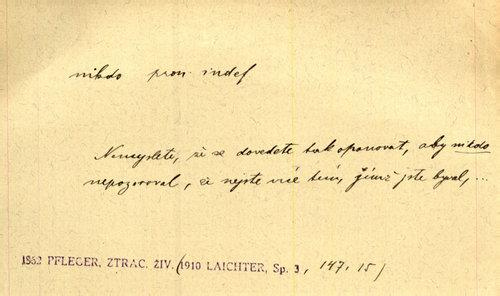 nikdo pron. indef
Nemyslete, že se dovedete tak opanovat, aby nikdo
nepozoroval, že nejste více tím, jímž jste býval, ...
1862 PFLEGER, ZTRAC. ŽIV. (1910 LAICHTER, Sp. 3, 147, 15)